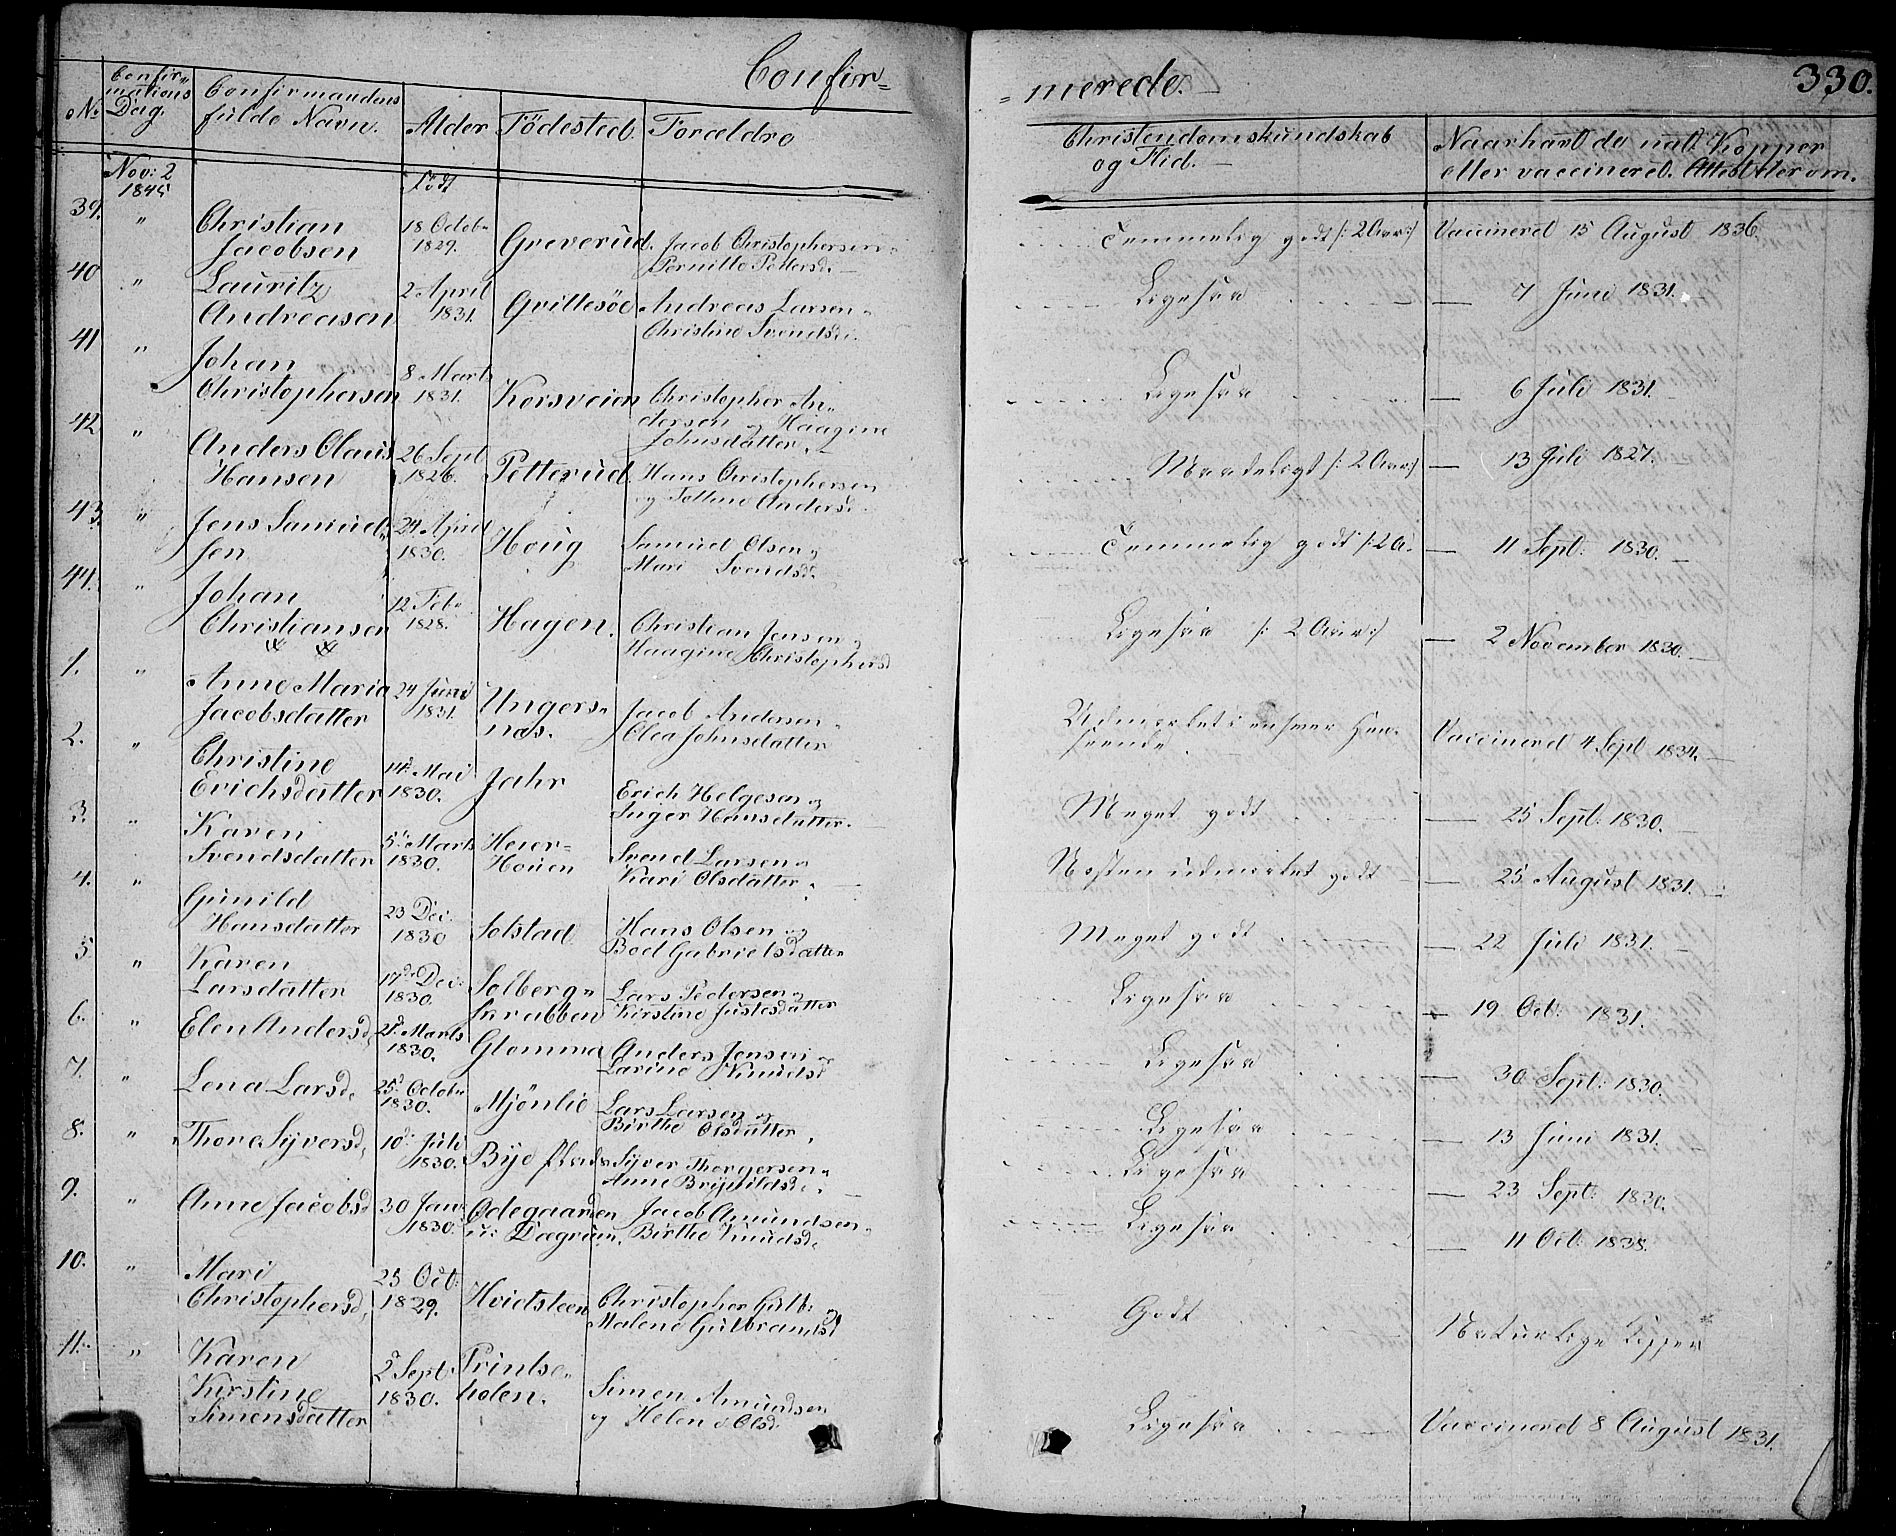 Confir=
=merede.
330.
No.
Confir=
mations
Dag.
Confirmandens
fulde Navn.
Alder
Födested.
Forældre
Christendomskundskab
og Flid.
Naar havt de nat. Kopper
eller vaccineret. Attest derom.
Nov: 2
1845
Födt
39. " Christian Jacobsen 18 Octobr 1829. Greverud. Jacob Christophersen Pernille Pettersd. Temmelig godt /: 2 Aar :/ Vaccinered 15 August 1836.
40 " Lauritz Andreasen 2 April 1831. Gvittesöe Andreas Larsen Christine Svendsd. Ligesaa — 7 Juni 1831.
41 " Johan Christophersen 8 Marts 1831. Korsveien Christopher Andersen og Haagine Johnsdatter Ligesaa — 6 Juli 1831.
42 " Anders Olaus Hansen 26 Sept 1826. Petterud. Hans Christophersen og Andersd. Maadeligt /: 2 Aar :/ — 13 Juli 1827.
43. " Jens Samuelsen 24 April 1830. Houg Samuel Olsen og Mari Svendsd. Temmelig godt /: 2 A. — 11 Sept: 1830.
44. " Johan Christiansen 12 Feb. 1828. Hagen. Christian Jensen og Haagine Christophersd Ligesaa /: 2 Aar :/ — 2 November 1830.
1. " Anne Maria Jacobsdatter 24 Juni 1831. Ungersnæs. Jacob Andersen Olea Johnsdatter Udmærket i enhver Henseende. Vaccinered 4 Sept 1834.
2. " Christine Erichsdatter 14d Mai 1830. Jahr Erich Helgesen og Inger Hansdatter. Meget godt — 25 Sept: 1830.
3. " Karen Svendsdatter 5d Marts 1830. Heier-Houen Svend Larsen og Kari Olsdatter. Næsten udmærket godt — 25 August 1831.
4. " Gunild Hansdatter 23 Dec. 1830 Solstad Hans Olsen og Boel Gabrielsdatter Meget godt — 22 Juli 1831.
5 " Karen Larsdatter 17d Dec: 1830. Solberg= Skrabben Lars Pedersen og Kirstine Justesdatter Ligesaa — 19 Oct: 1831.
6. " Elen Andersd. 21d Marts 1830. Glomma Anders Jensen og Larine Knudsd Ligesaa — 30 Sept: 1830.
7. " Lena Larsd. 25d Octobr 1830. Mjönlie Lars Larsen og Birthe Olsdatter. Ligesaa — 13 Juni 1831.
8. " Thore Syversd. 10d Juli 1830. Bye Syver Thorgersen Anne Brynildsd. Ligesaa — 23 Sept: 1830.
9. " Anne Jacobsd 30 Jan. 1830. Ödegaarden u: Dægrum. Jacob Amundsen Birthe Knudsd. Ligesaa — 11 Oct: 1838.
10. " Mari Christophersd. 25 Oct: 1829. Hvidsteen Christopher Gulb: og Malene Gulbrandsd Godt Naturlige Kopper
11. " Karen Kirstine Simensdatter 2d Sept 1830. Printseholen. Simen Amundsen og Helene Olsd. Ligesaa Vaccinered 8 August 1831.